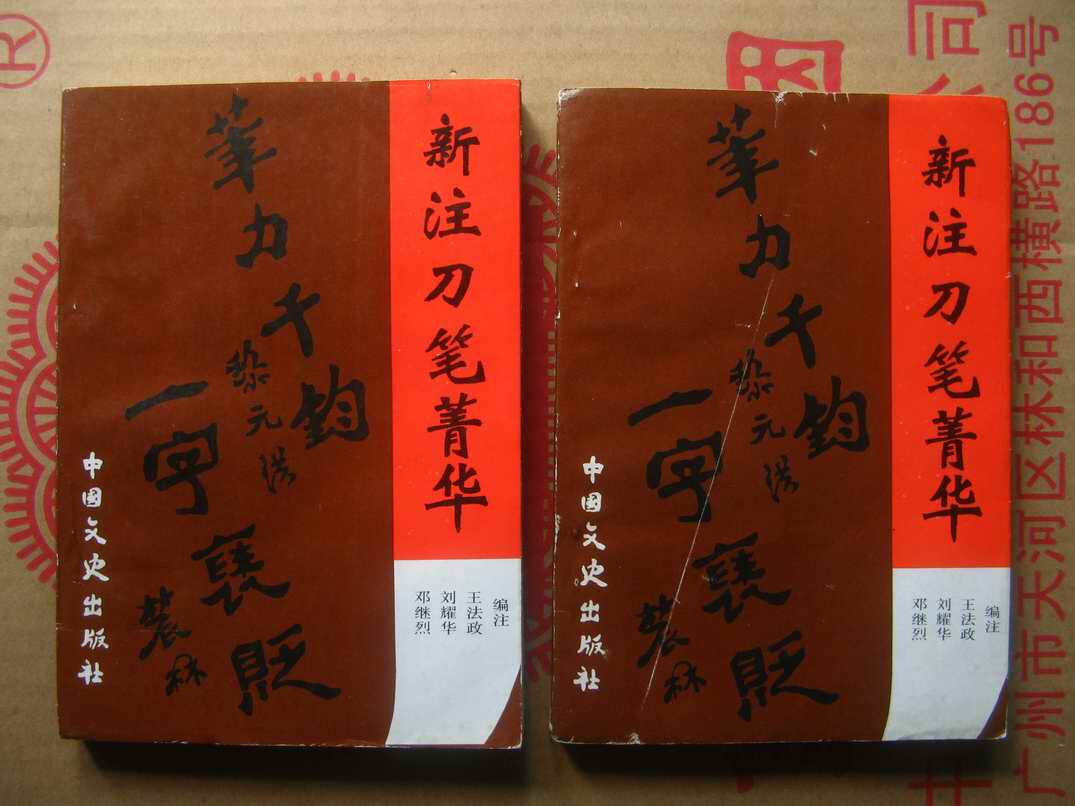 新注刀笔菁华
编注
王法政
刘耀华
邓继烈
筆力千鈞
黎元洪
一字褒貶
中國文史出版社
新注刀笔菁华
编注
王法政
刘耀华
邓继烈
筆力千鈞
黎元洪
一字褒貶
中國文史出版社
®
公司
广州市天河区林和西横路186号